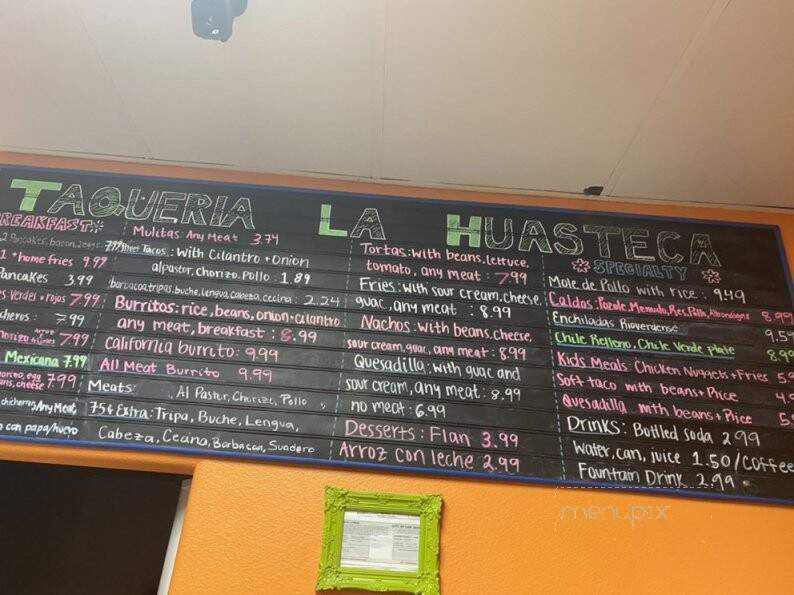 TAQUERIA LA HUASTECA
BREAKFAST
2 Pancakes, bacon, 2 eggs 7.99
+ home fries 9.99
Pancakes 3.99
verdes + rojos 7.99
7.99
7.99
Mexicana 7.99
egg
beans, cheese 7.99
chicharron, Any Meat,
con papa/huevo
Mulitas: Any Meat 3.74
Street Tacos: With Cilantro + Onion
al pastor, chorizo, Pollo : 1.89
barbacoa, tripas, buche, lengua, cabeza, cecina : 2.24
Burritos: rice, beans, onion + cilantro
any meat, breakfast : 8.99
California burrito: 9.99
All Meat Burrito 9.99
Meats: Al Pastor, Chorizo, Pollo
75¢ Extra: Tripa, Buche, Lengua,
Cabeza, Ceana, Barbacoa, Suadero
Tortas: with beans, lettuce,
tomato, any meat : 7.99
Fries: with sour cream, cheese,
guac, any meat : 8.99
Nachos: with beans, cheese,
sour cream, guac, any meat : 8.99
Quesadilla: with guac and
sour cream, any meat: 8.99
no meat: 6.99
Desserts: Flan 3.99
Arroz con leche 2.99
SPECIALTY
Mole de Pollo with rice : 9.49
Caldos: Pozole, Menudo, Res, Pollo, Albondigas 8.99
Enchiladas Rioverdense 9.59
Chile Relleno, Chile Verde plate 8.99
Kids Meals: Chicken Nuggets + Fries
Soft taco with beans + Rice
Quesadilla with beans + Rice
Drinks: Bottled Soda 2.99
Water, can, juice 1.50/Coffee
Fountain Drink 2.99
menupix